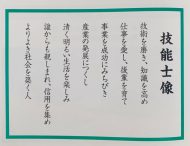 技能士像
技術を磨き、知識を高め
仕事を愛し、後輩を育て
事業を成功にみちびき
産業の発展につくし
清く明るい生活を楽しみ
誰からも親しまれ、信用を集め
よりよき社会を築く人